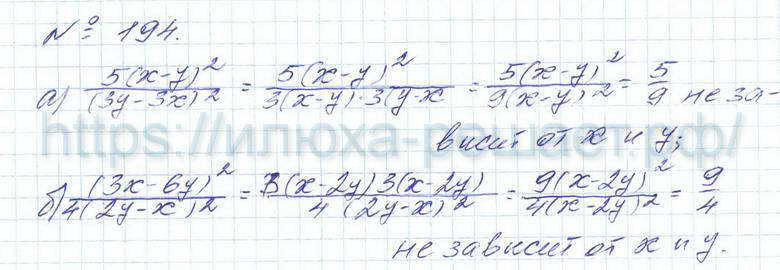 № 194.
а) 5(x-y)² / (3y-3x)² = 5(x-y)² / 3(x-y)·3(y-x = 5(x-y)² / 9(x-y)² = 5/9 не за-
висит от x и y;
https://илюха-решит.рф/
б) (3x-6y)² / 4(2y-x)² = 3(x-2y)3(x-2y) / 4(2y-x)² = 9(x-2y)² / 4(x-2y)² = 9/4
не зависит от x и y.